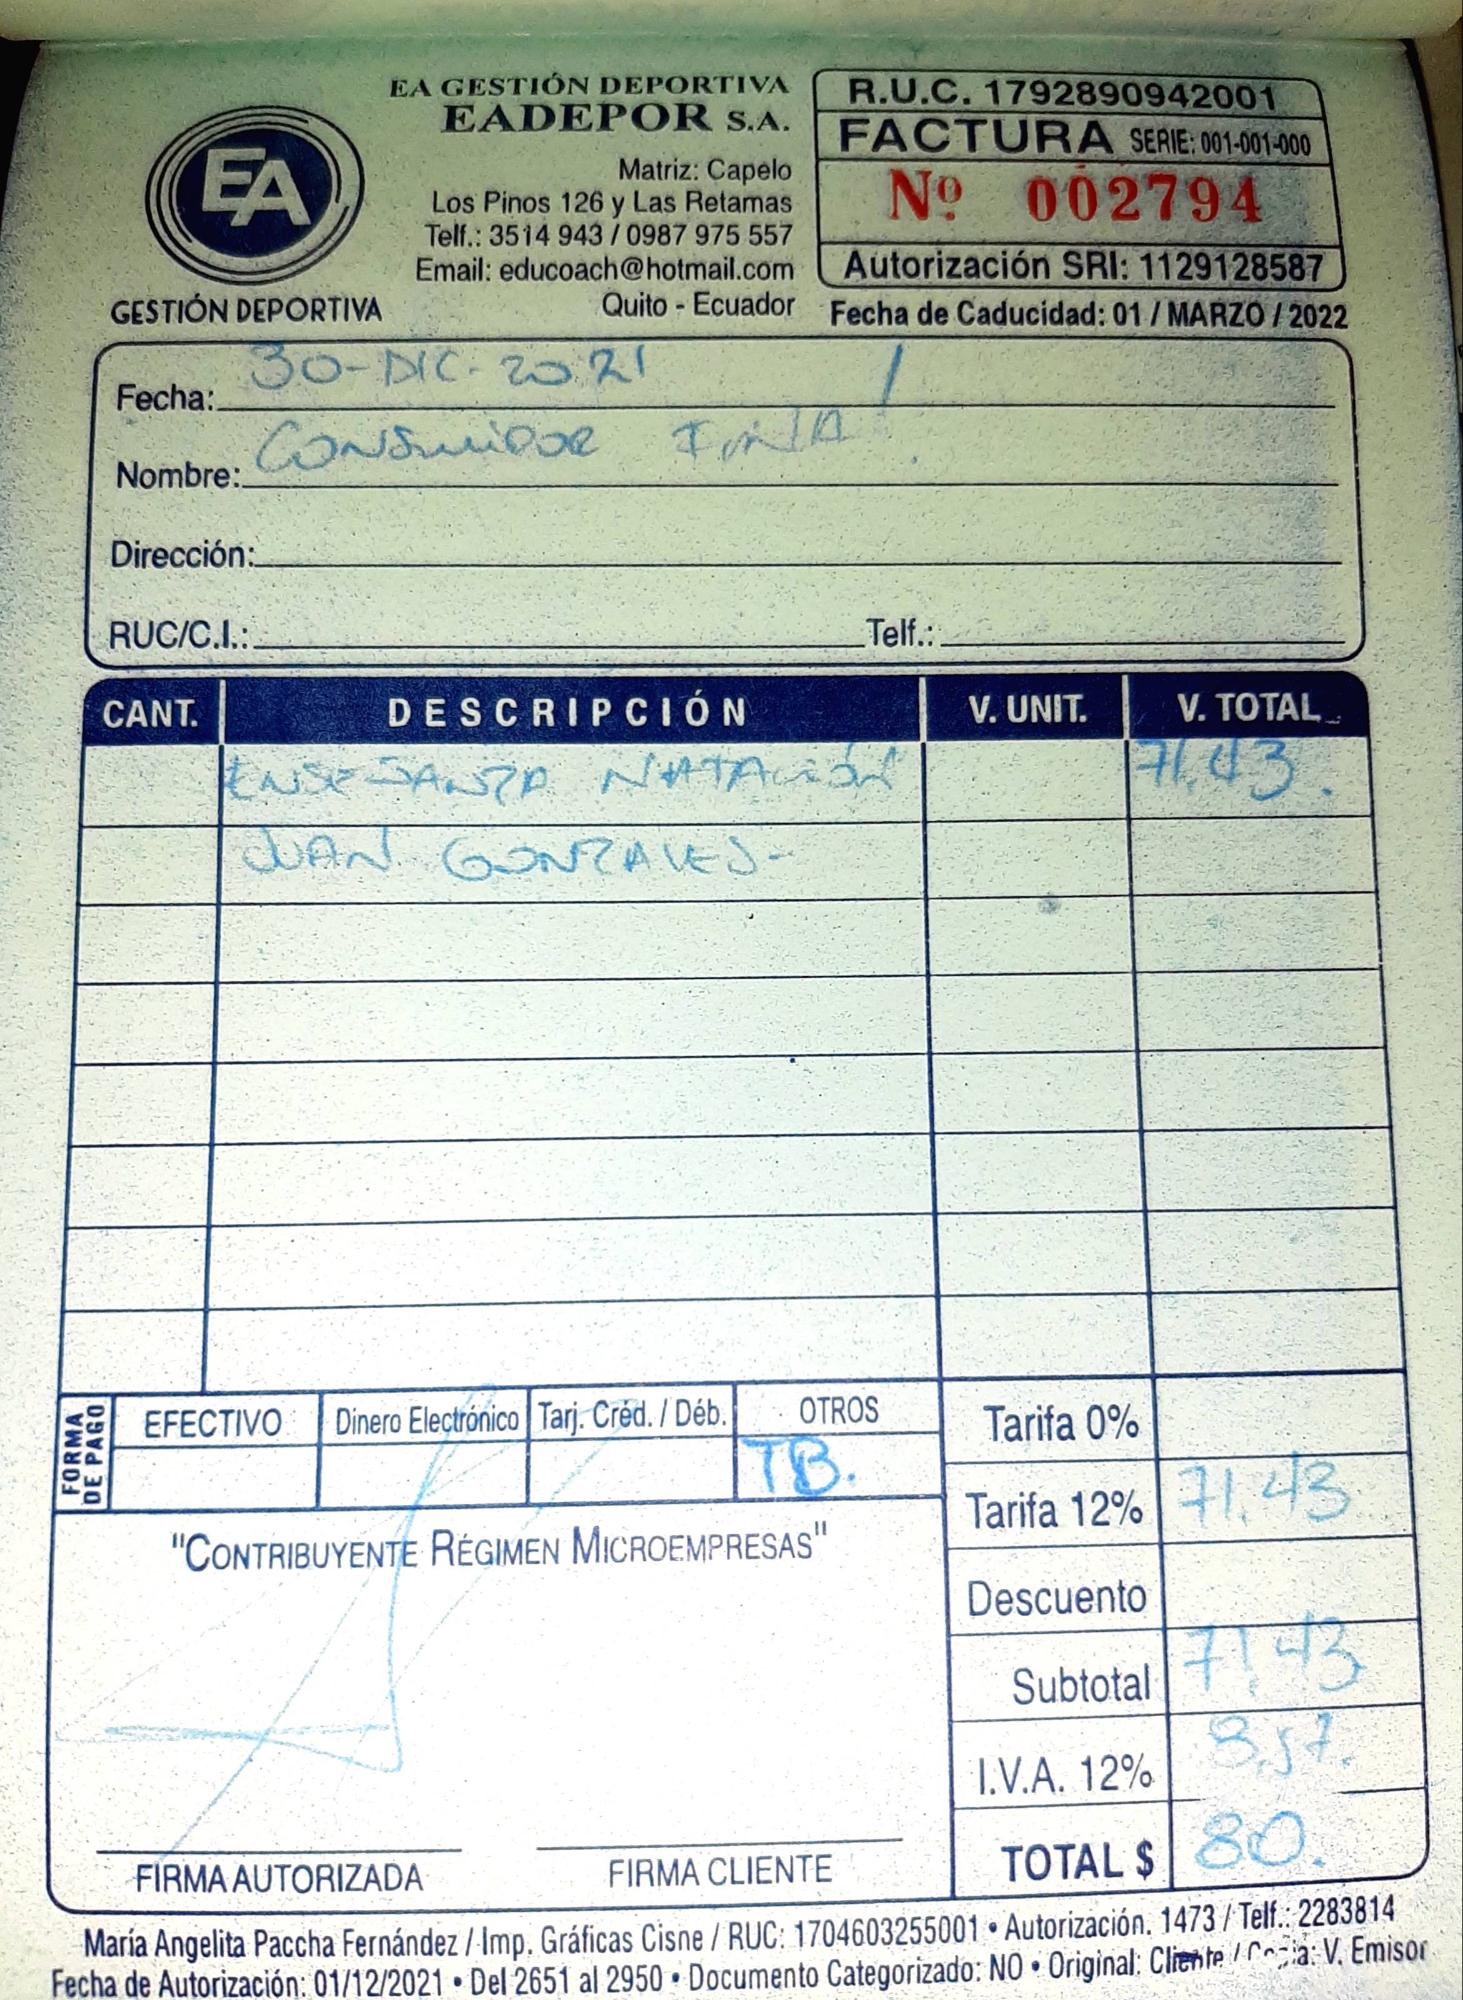 EA GESTIÓN DEPORTIVA
EADEPOR S.A.
Matriz: Capelo
Los Pinos 126 y Las Retamas
Telf.: 3514 943 / 0987 975 557
Email: educoach@hotmail.com
Quito - Ecuador
EA
GESTIÓN DEPORTIVA
R.U.C. 1792890942001
FACTURA SERIE: 001-001-000
Nº 002794
Autorización SRI: 1129128587
Fecha de Caducidad: 01 / MARZO / 2022
Fecha: 30-DIC-2021
Nombre: CONSUMIDOR FINAL
Dirección:
RUC/C.I.: Telf.:
CANT. DESCRIPCIÓN V. UNIT. V. TOTAL
ENSEÑANZA NATACIÓN 71.43.
JUAN GONZALES-
FORMA DE PAGO
EFECTIVO Dinero Electrónico Tarj. Créd. / Déb. OTROS
TB.
Tarifa 0%
Tarifa 12% 71.43
Descuento
Subtotal 71.43
I.V.A. 12% 8,57.
TOTAL $ 80.
"CONTRIBUYENTE RÉGIMEN MICROEMPRESAS"
FIRMA AUTORIZADA FIRMA CLIENTE
María Angelita Paccha Fernández / Imp. Gráficas Cisne / RUC: 1704603255001 • Autorización. 1473 / Telf.: 2283814
Fecha de Autorización: 01/12/2021 • Del 2651 al 2950 • Documento Categorizado: NO • Original: Cliente / Copia: V. Emisor